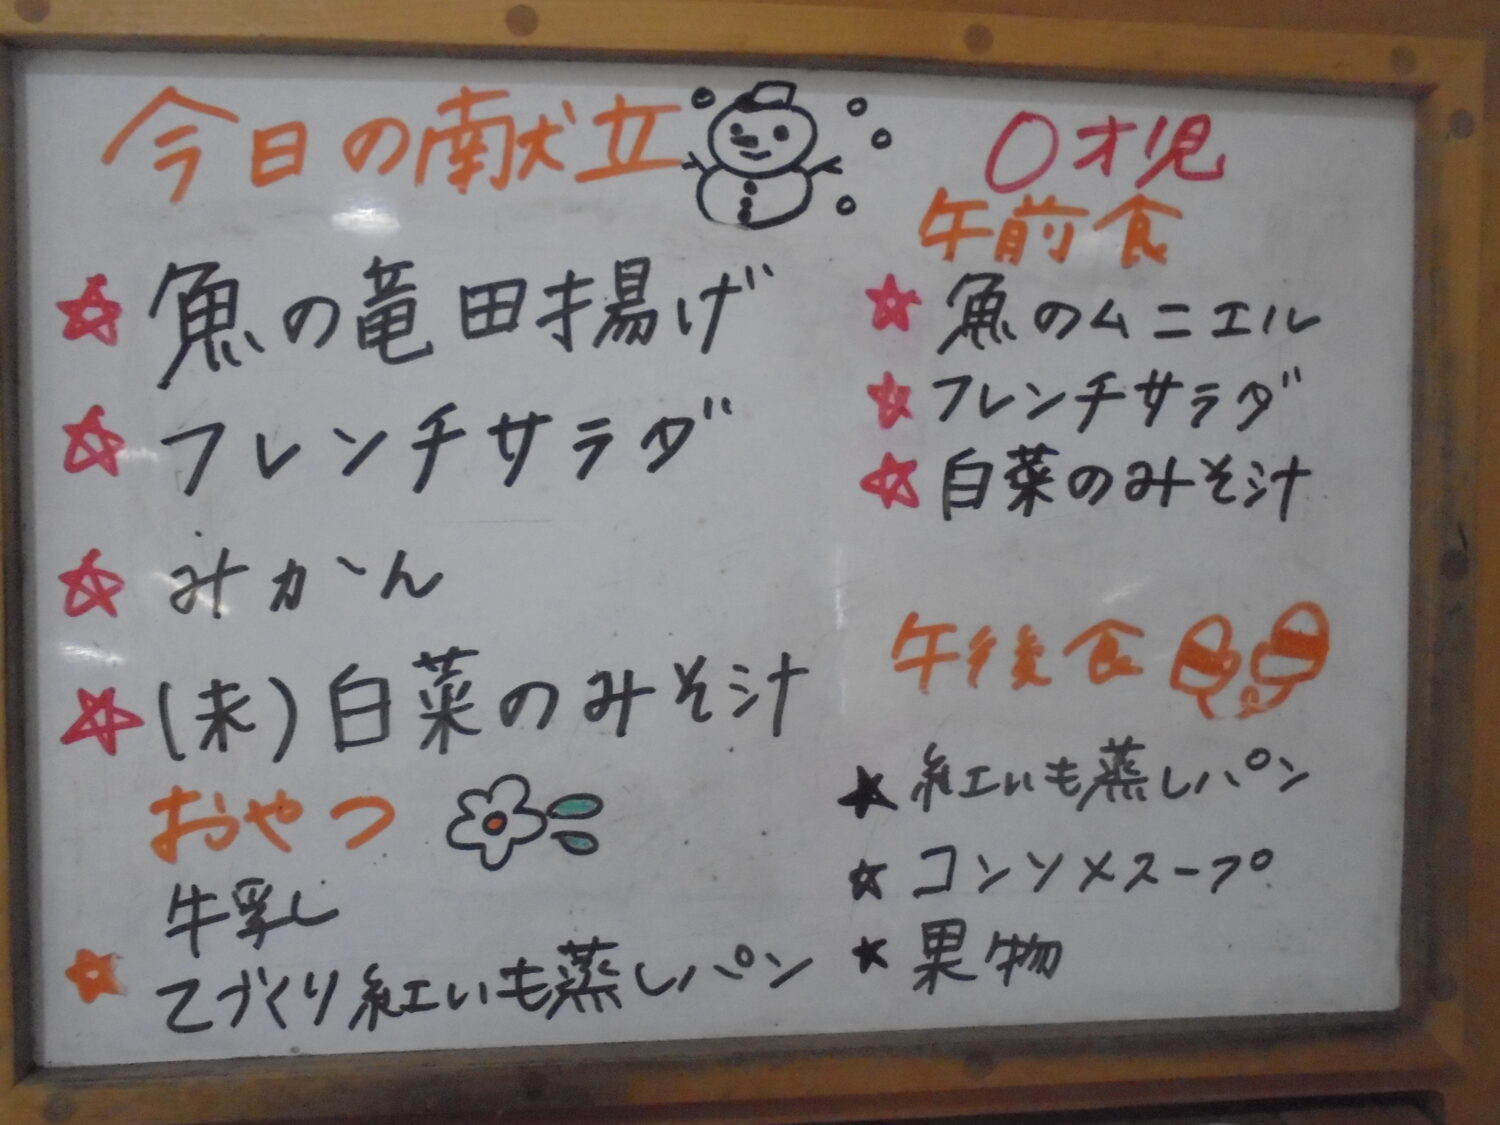 今日の献立
☆ 魚の竜田揚げ
☆ フレンチサラダ
☆ みかん
☆ (未)白菜のみそ汁
おやつ
牛乳
☆ てづくり紅いも蒸しパン
0才児
午前食
☆ 魚のムニエル
☆ フレンチサラダ
☆ 白菜のみそ汁
午後食
★ 紅いも蒸しパン
☆ コンソメスープ
★ 果物